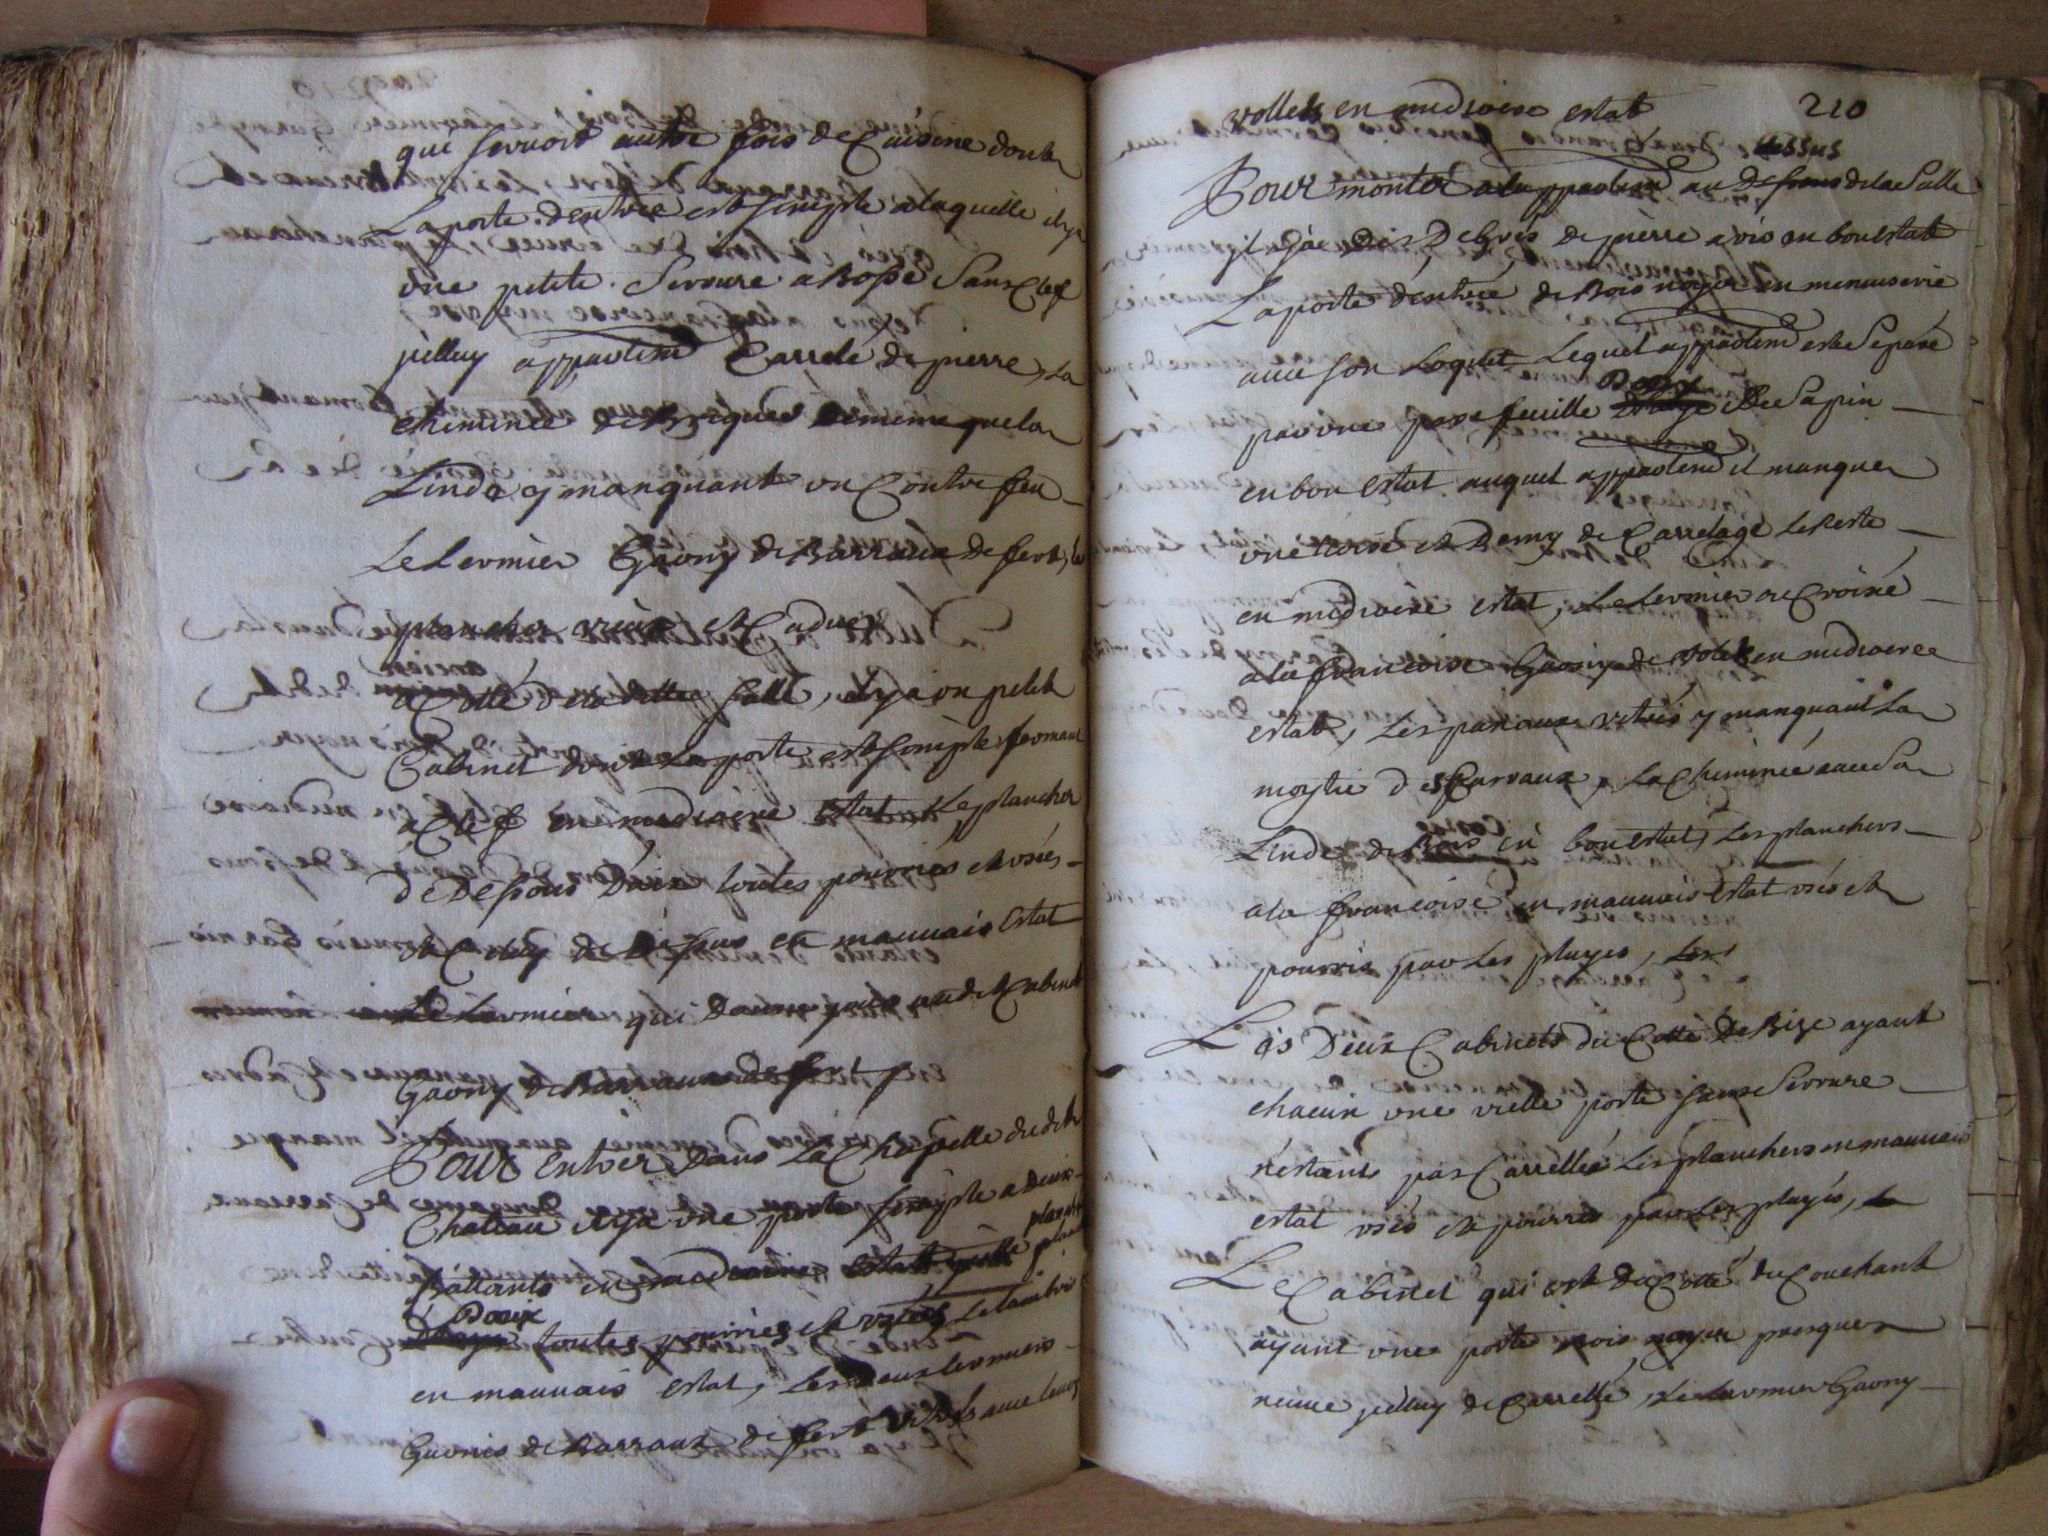 qui servoit autre fois de Cuisine dont
La porte d'entrée est simple a laquelle il y a
une petite Serrure a Bosse Sans Clef
jcelluy appartem carrelé de pierre, La
cheminée de Briques de meme que la
Linde y manquant un Contre feu
Le Larmier Garny de Barraux de fert, le
plancher vieux et Caduc
a Cotté de la ditte salle, il y a un petit
ancien
Cabinet dont La porte est simple fermant
a Clef en mediocre estat, Le plancher
de Dessous D'aix toutes pourries et usées
et Celuy de Dessus en mauvais Estat
Le Larmier qui Donne jour au dit Cabinet
Garny de Barraux de fert
Pour Entrer Dans La Chapelle du dit
Chateau il y a une porte simple a Deux
Battants en mediocre estat
planché
D'aix toutes pourries et usées Le lambri
en mauvais estat, Les Deux Larmiers
Garnis de Barraux de fert vitrés avec leurs
vollets en mediocre estat
210
ussus
Pour monter a lappartem au Dessous de la Salle
il y a Dix Degrés de pierre a vis en bon Estat
La porte d'entrée de Bois noyer en menuserie
avec son Loquet Lequel appartem est Separé
par une posse feuille Bois de Sapin
en bon estat auquel appartem il manque
une toise et Demy de Carrelage Le Reste
en mediocre estat, Le Larmier ou Croisée
a la francoise Garny de volet en mediocre
estat, Les panaux vitrés y manquant La
moytie des Carraux, La Cheminée avec Sa
Linde de Bois en bon estat, Les planchers
a la francoise en mauvais estat usés et
pourris par Les pluyes, Les
Les Deux Cabinets du Cotté de Bize ayant
chacun une vielle porte sans Serrure
n'estants pas Carrellés Les planchers en mauvais
estat usés et pourris par Les pluyes, Le
Le Cabinet qui est du Cotté du Couchant
ayant une porte Bois noyer presque
neuve jcelluy de Carrellé, Le Larmier Garny